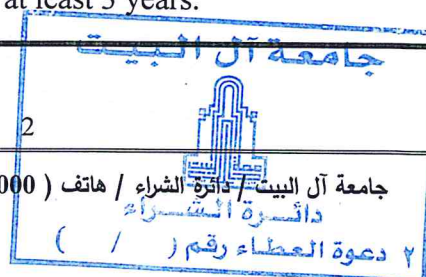 at least 3 years.
جامعة آل البيت
2
جامعة آل البيت / دائرة الشراء / هاتف ( 000
دائرة الشراء
٢ دعوة العطاء رقم ( / )